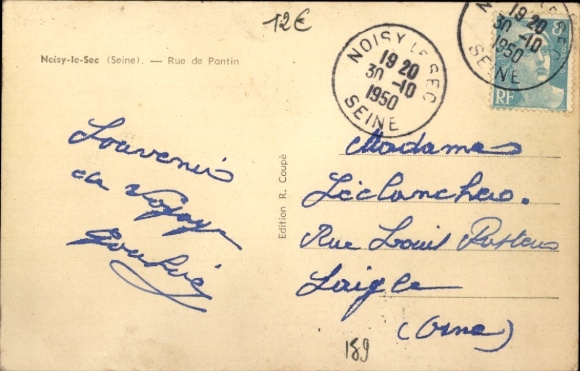 12€
Noisy-le-Sec (Seine). — Rue de Pantin
NOISY LE SEC
19 20
30 -10
1950
SEINE
19 20
30 -10
1950
SEINE
RF
Souvenir
de Voyage
Edition R. Coupé
Madame
Rue Louis Pasteur
Laigle
(Orne)
189